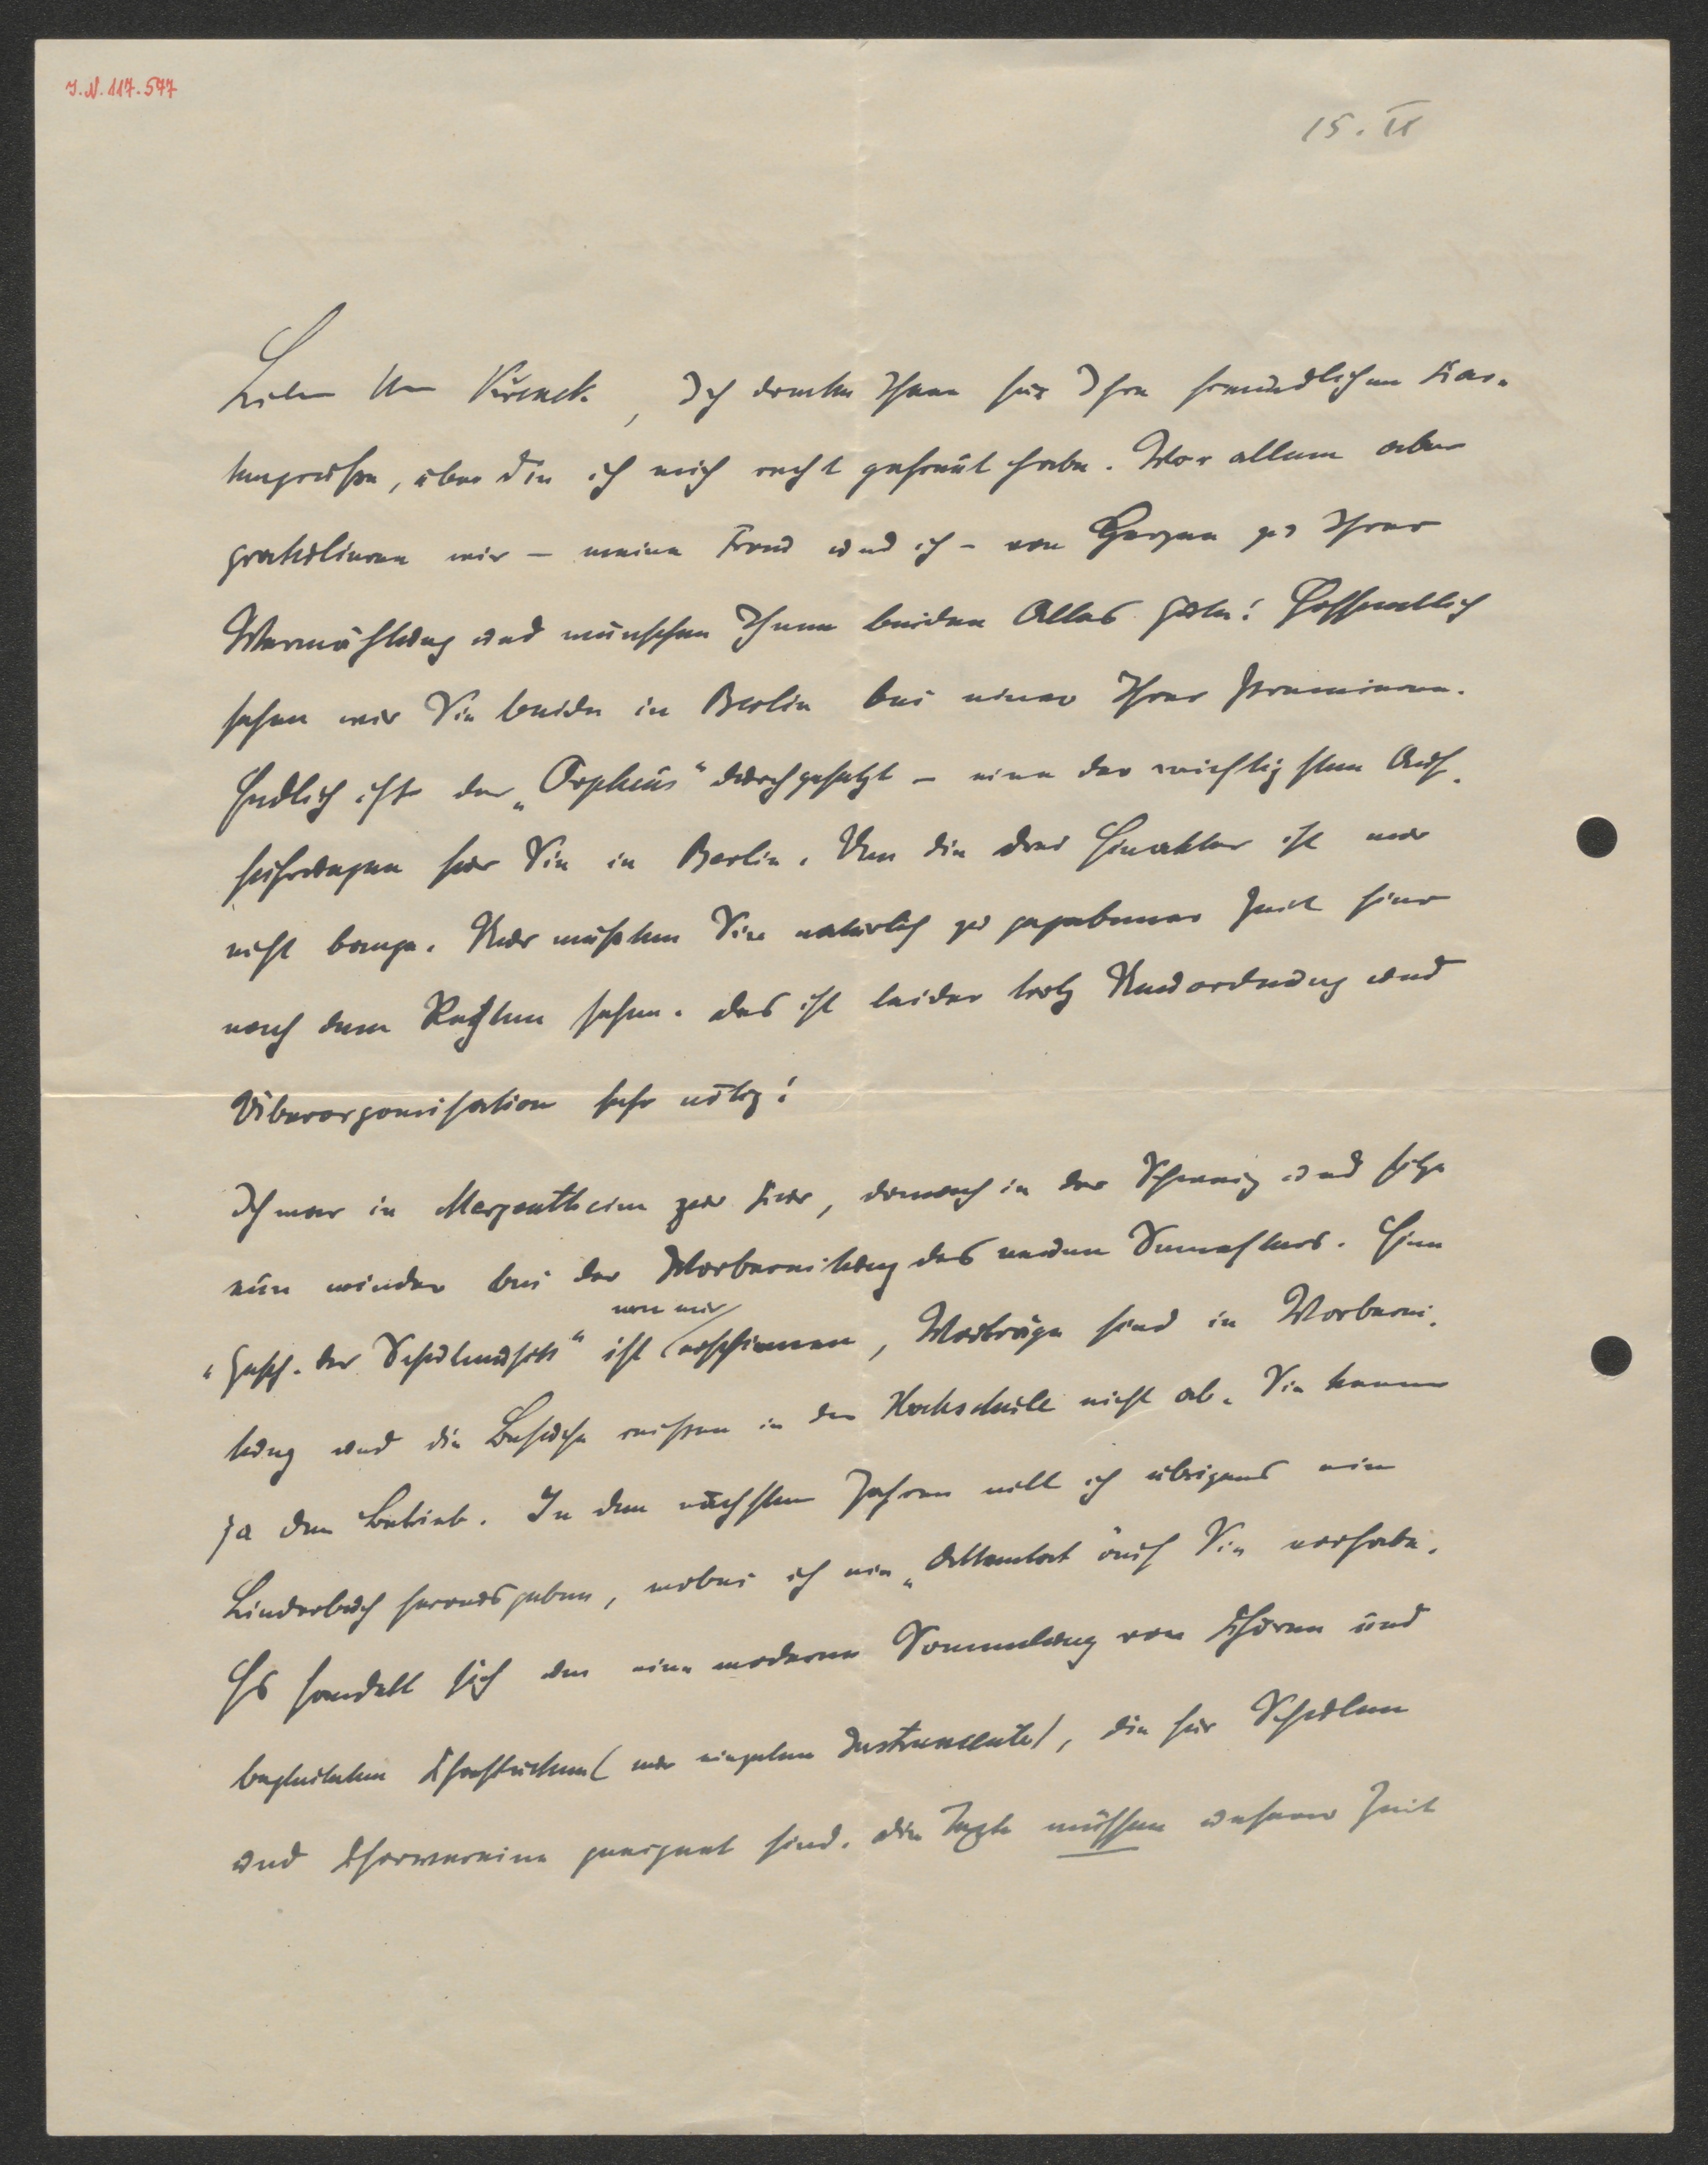 J.N. 117.577
15. IX
Lieber Herr Křenek, Ich danke Ihnen für Ihre freundlichen Kar-
tengrüsse, über die ich mich recht gefreut habe. Vor allem aber
gratulieren wir – meine Frau und ich – von Herzen zu Ihrer
Vermählung und wünschen Ihnen beiden Alles Gute! Hoffentlich
sehen wir Sie beide in Berlin bei einer Ihrer Premieren.
Endlich ists der „Orpheus" durchgesetzt – eine der wichtigsten Auf-
führungen für Sie in Berlin. Um die drei Einakter ist mir
nicht bange. Nur müssten Sie natürlich zu gegebener Zeit hier
nach dem Rechten sehen. Das ist leider trotz Neuordnung und
Überorganisation sehr nötig!
Ich war in Mergentheim zur Kur, danach in der Schweiz und sitze
nun wieder bei der Vorbereitung des neuen Semesters. Eine
„Gesch. der Schulmusik" ist von mir erschienen, Vorträge sind in Vorberei-
tung und die Besuche reissen in der Hochschule nicht ab. Sie kennen
ja den Betrieb. In den nächsten Jahren will ich übrigens ein
Liederbuch herausgeben, wobei ich ein „Attentat auf Sie vorhabe.
Es handelt sich um eine moderne Sammlung von Chören und
begleiteten Chorstücken (nur einzelne Instrumente), die für Schulen
und Chorvereine geeignet sind. Die Texte müssen unserer Zeit